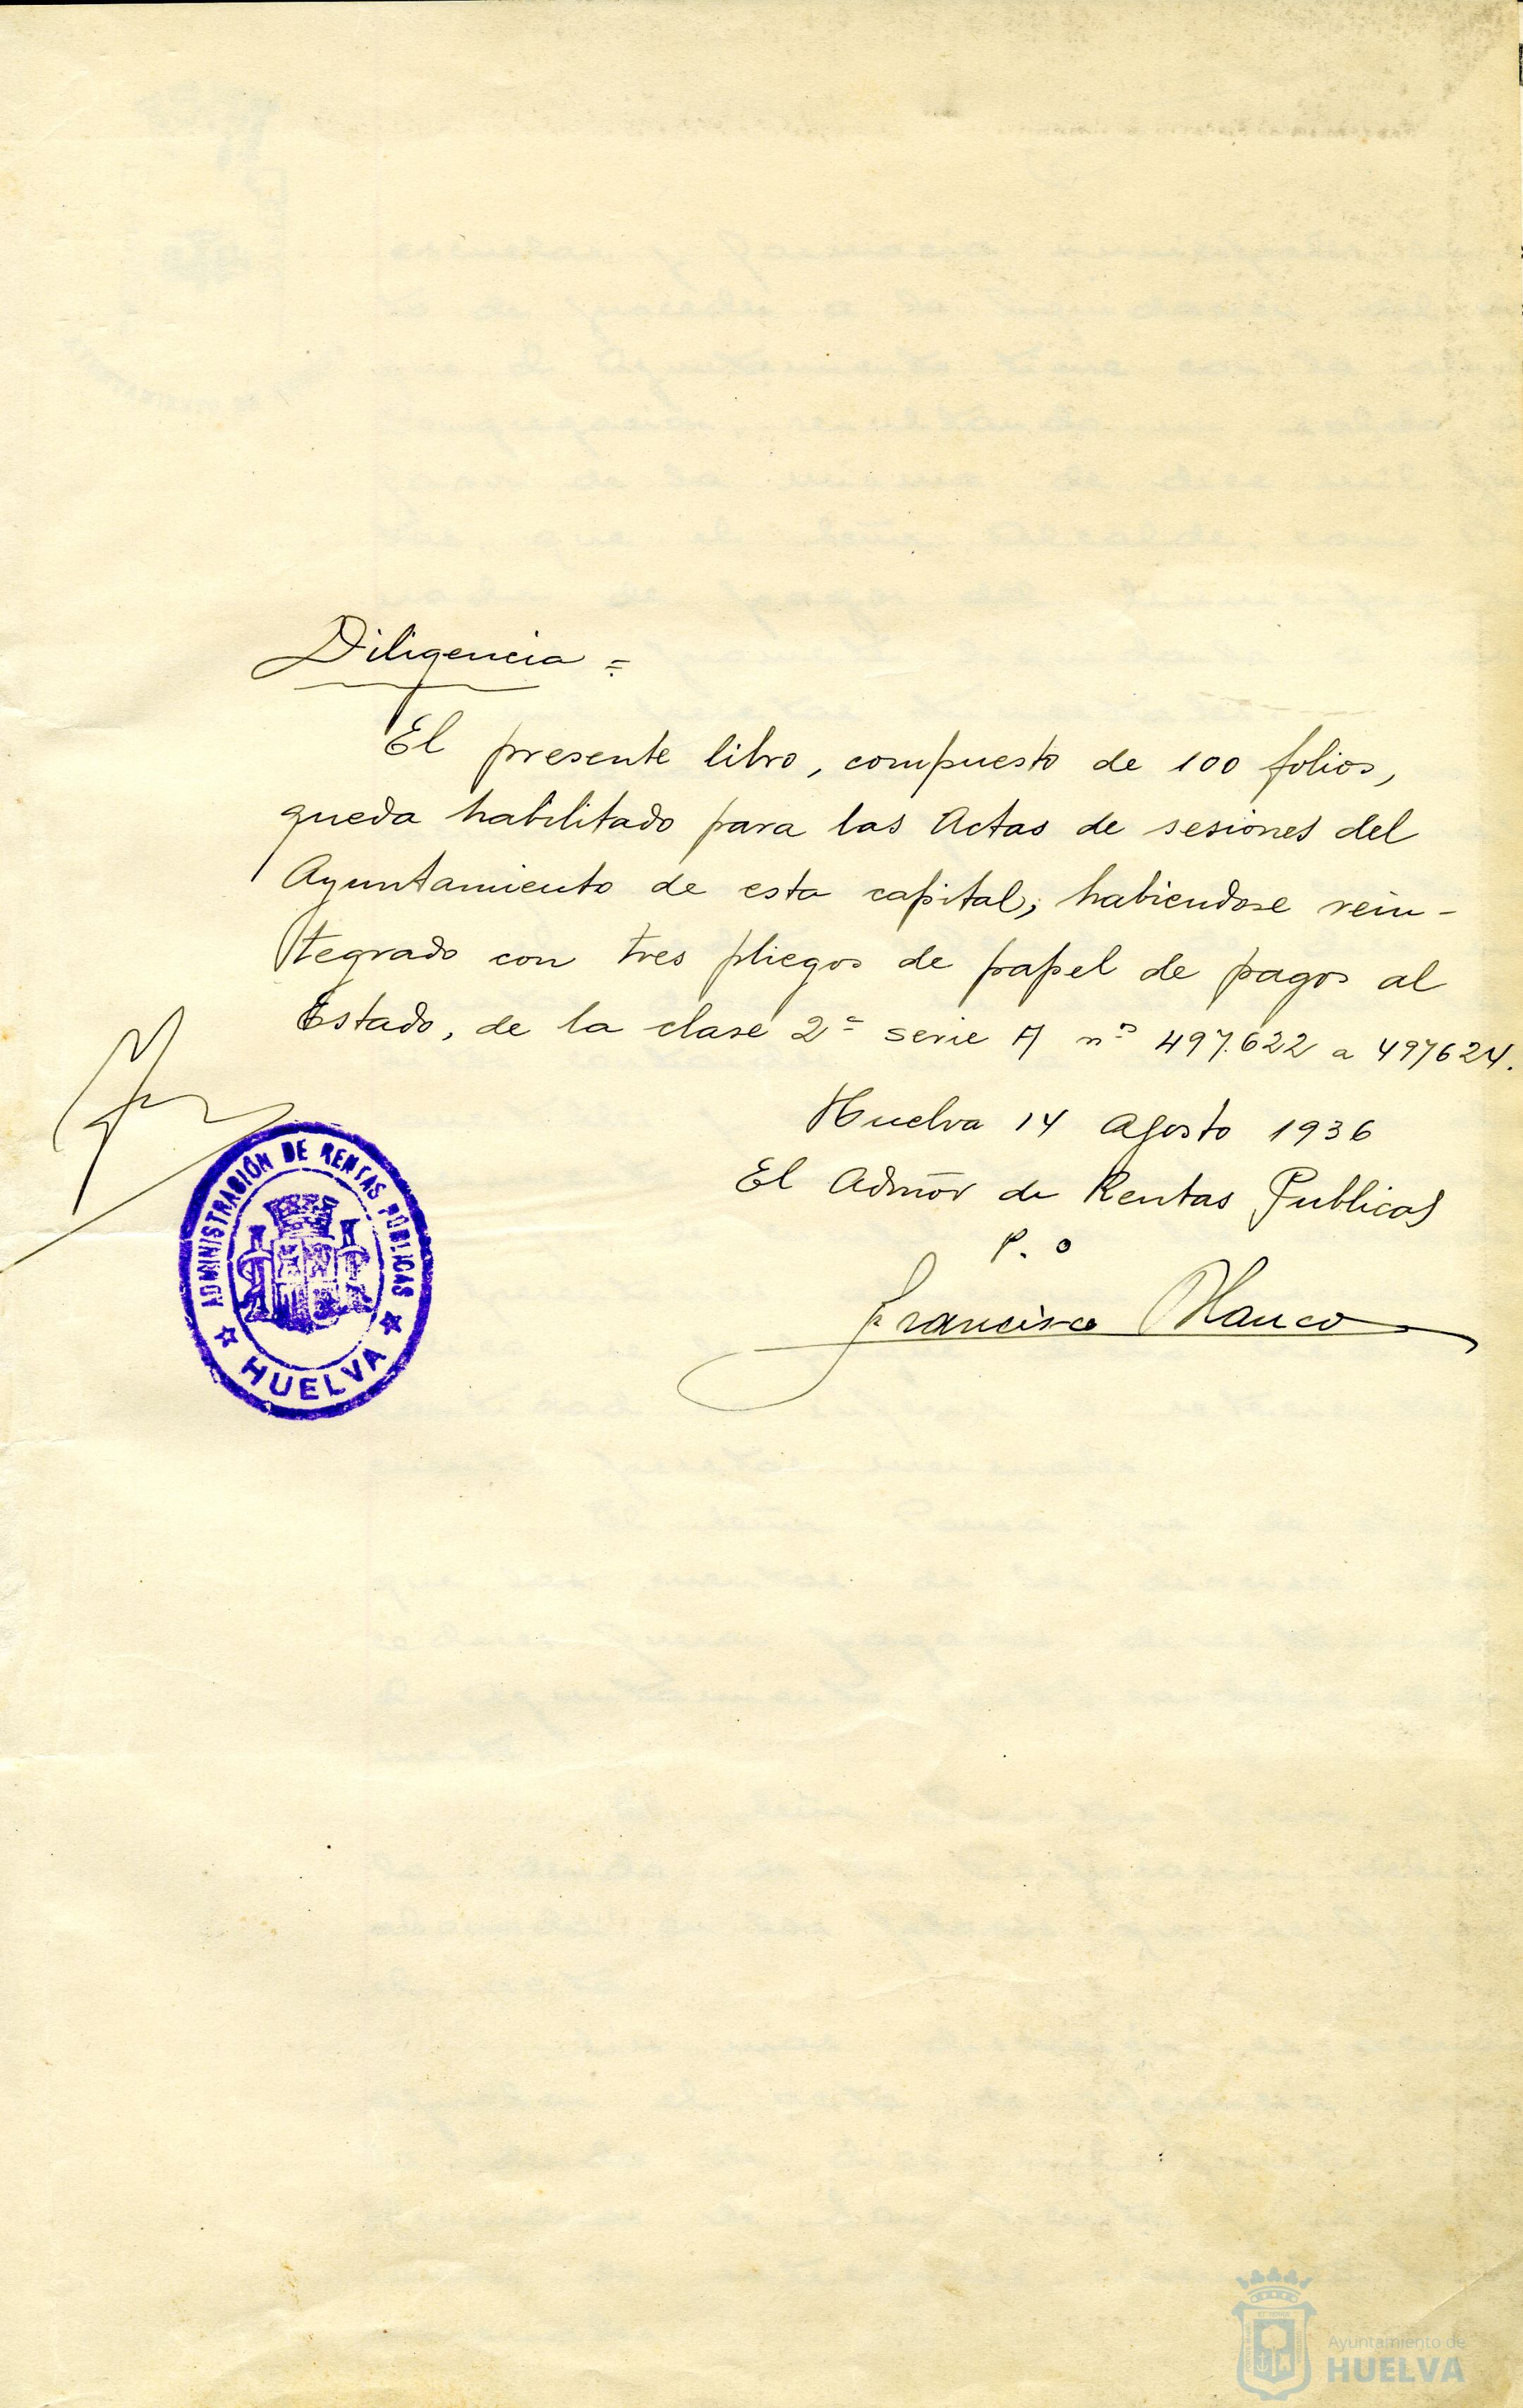 Diligencia =
El presente libro, compuesto de 100 folios,
queda habilitado para las Actas de sesiones del
Ayuntamiento de esta capital, habiendose rein-
tegrado con tres pliegos de papel de pagos al
Estado, de la clase 2ª serie A nº 497.622 a 497624.
Huelva 14 Agosto 1936
El Admor de Rentas Publicas
P. O
Francisco
ADMINISTRACIÓN DE RENTAS PÚBLICAS
HUELVA
Ayuntamiento de
HUELVA